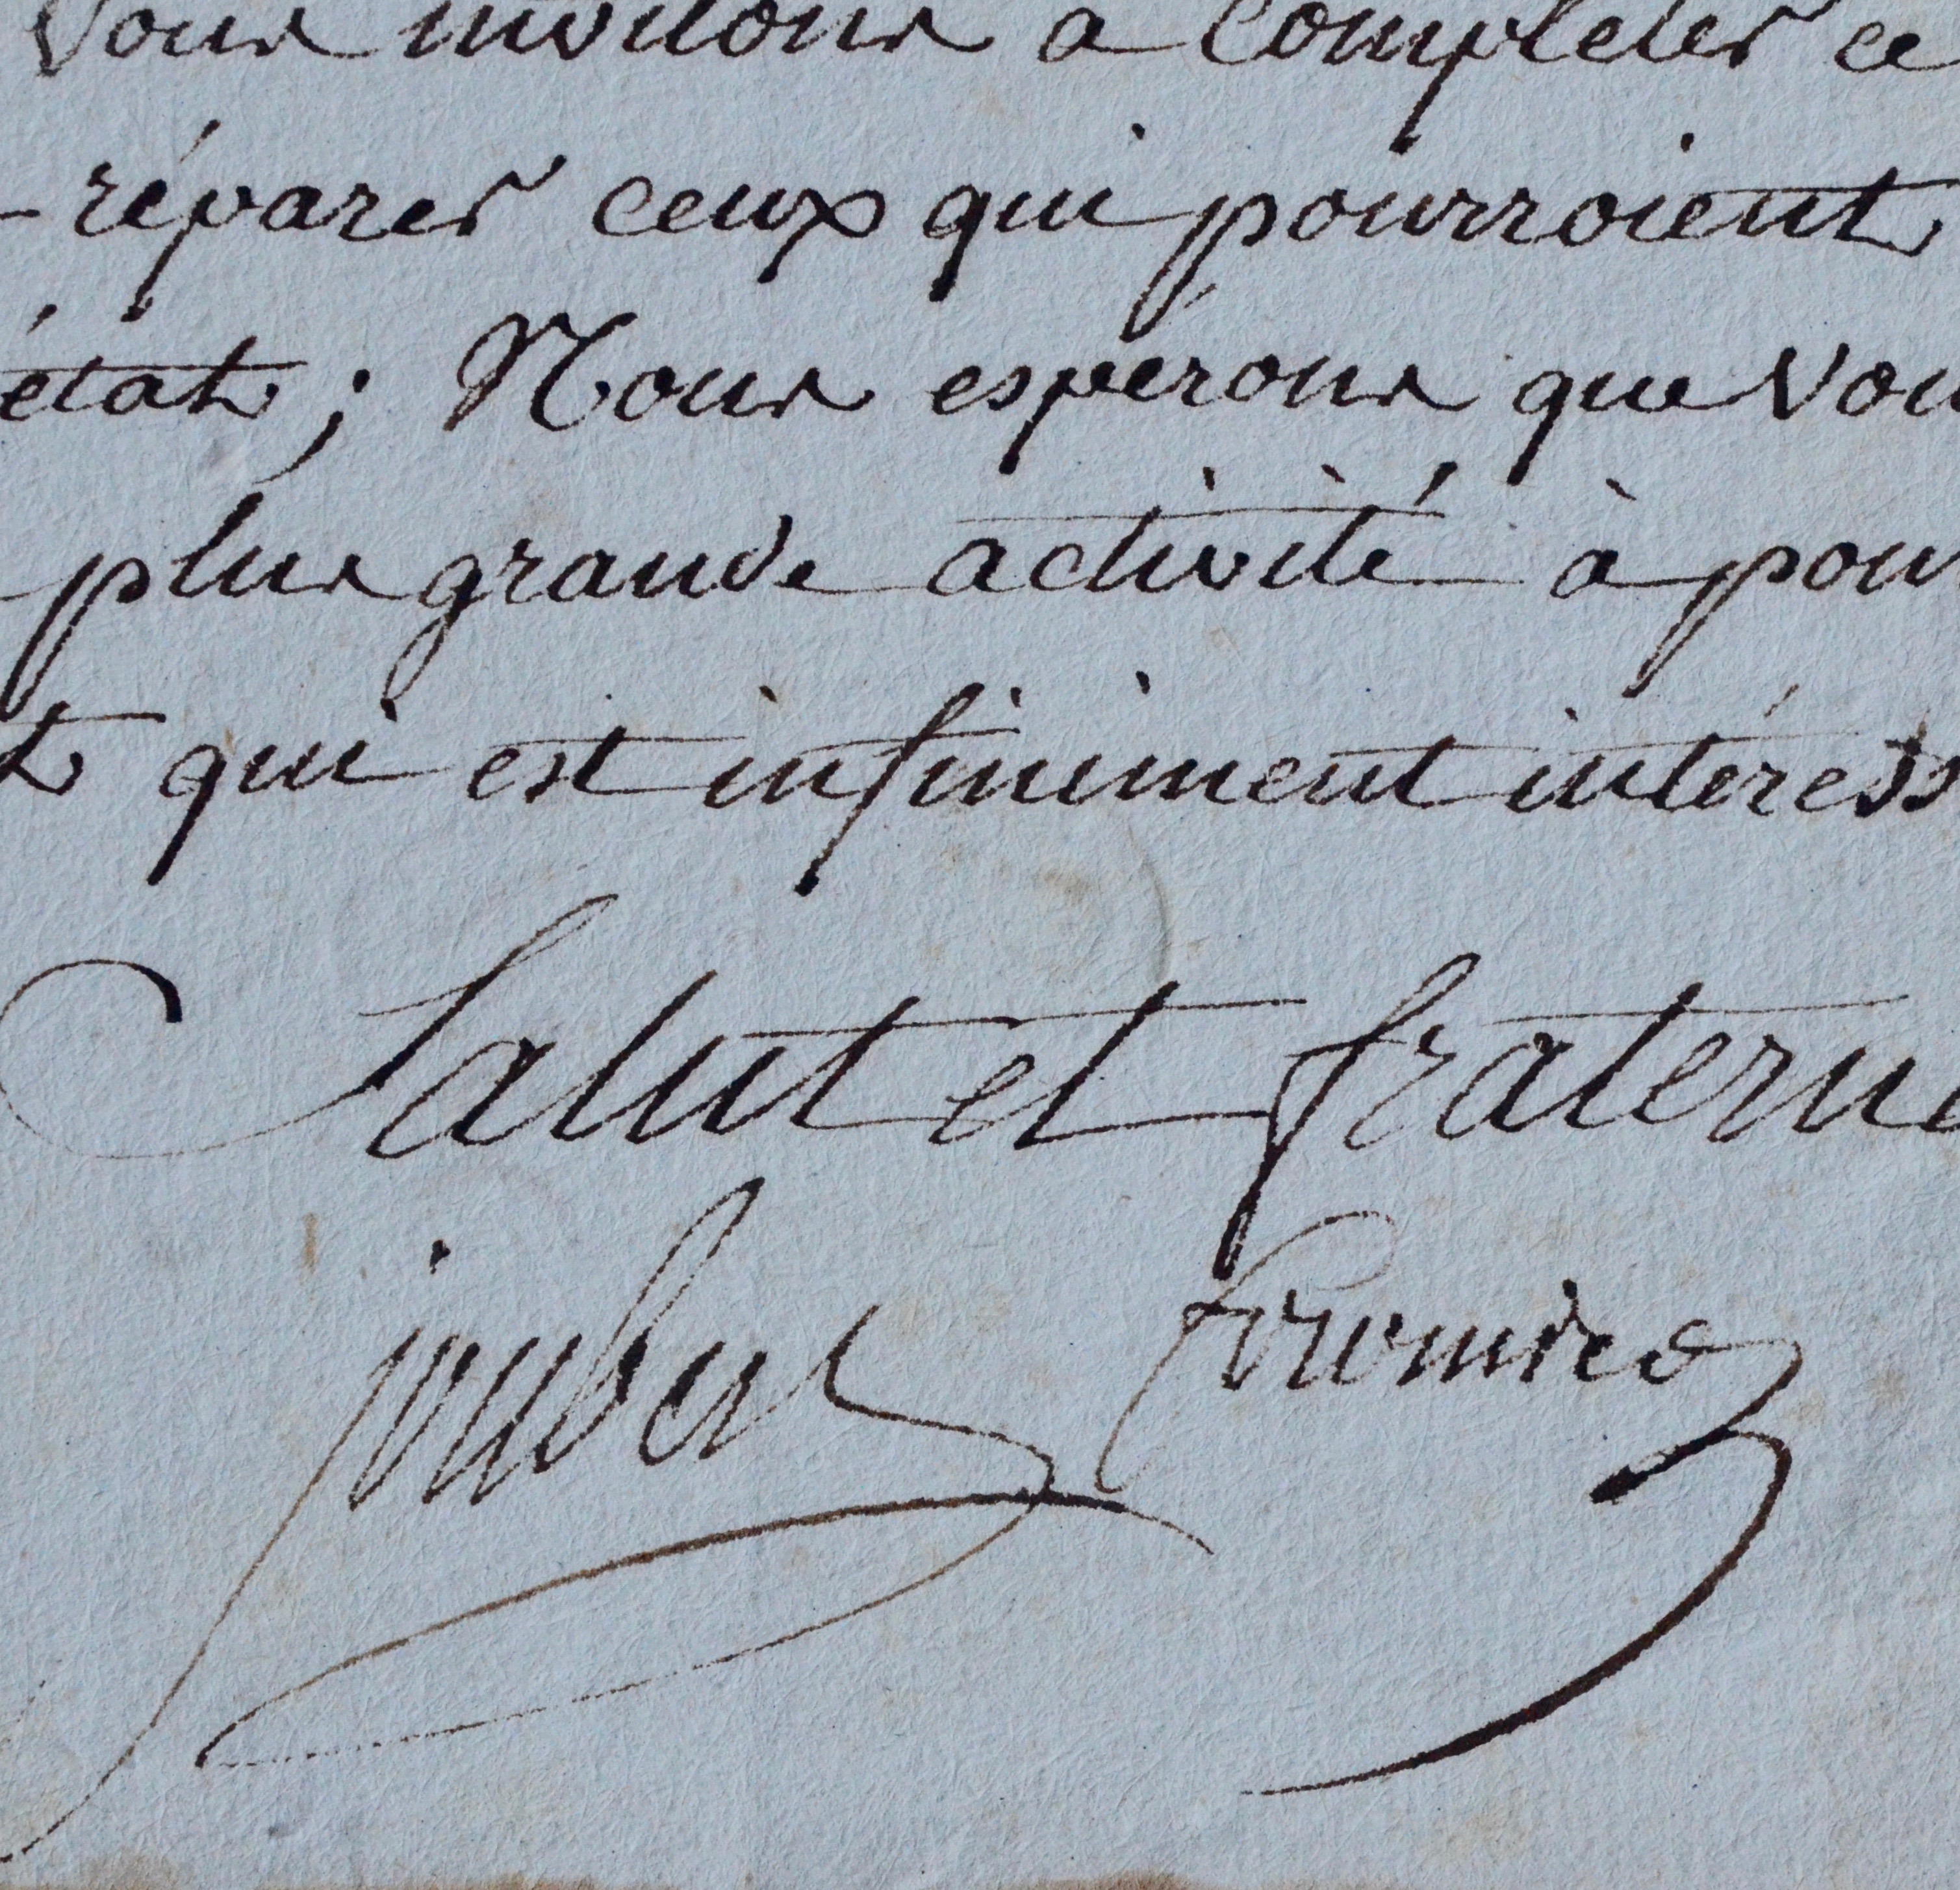 Vous invitons a Completer ce
-réparer ceux qui pourroient
état ; Nous esperons que Vou
plus grande activité à pour
t qui est infiniment intéress
Salut et fraterni
joubert